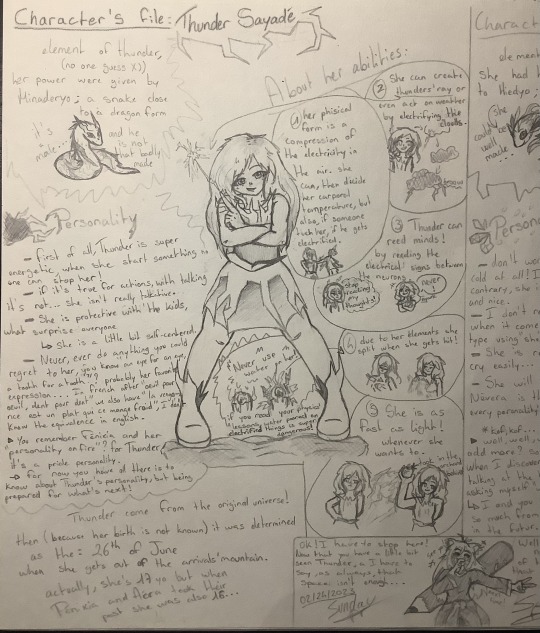 Character's file: Thunder Sayadé
element of thunder,
(no one guess X))
her power were given by
Hinaderyo; a snake close
to a dragon form
it's
a
male...
and he
is not
that badly
made
Personality
— first of all, Thunder is super
energetic, when she start something no
one can stop her!
— if it's true for actions, with talking
it's not... she isn't really talkative.
— She is protective with the kids,
what surprise everyone
↳ She is a little bit self-centered.
— Never, ever do anything you could
regret to her, you know an eye for an eye,
a tooth for a tooth??? probably her favorite
expression... In french after "oeil pour
oeuil, dent pour dent" we also have "la vengean
rice est un plat qui ce mange froid", I don't
know the equivalence in english.
▶ You remember Fenixia and her
personality on fire"? for Thunder,
it's a prickle personality.
→ for now you have all there is to
know about Thunder's personality, but being
prepared for what's next!
Thunder come from the original universe!
then (because her birth is not known) it was determined
as the: 26th of June
when she gets out of the arrivals'mountain.
actually, she's 17 yo but when
Fenixia and Aera took their
past she was also 16...
About her abilities:
① her phisical
form is a
compression of
the electricity in
the air. she
can, then decide
her corporal
temperature, but
also, if someone
tuch her, if he gets
electrified.
② She can create
thunders'ray or
even act on weather
by electrifying the
clouds.
③ Thunder can
reed minds!
by reeding the
electrical signs between
the neurons
stop
reading
my
thoughts!
never!
④ due to her elements she
split when she gets hit!
Never use
water on her
if you read your physics'
lessons, water pored on
electrified things is super
dangerous!
⑤ She is as
fast as light!
whenever she
wants to...
OK! I have to stop here!
Now that you have a little bit
seen Thunder, I have to
say, as always, that
space isn't enough...
02/26/2023
Charact
elemen
She had h
to Hiedyo;
She
could
well be
made
Persona
— don't wo
cold at all! I
contrary, she i
and nice.
— I don't
when it come
type using she
— She is r
cry easily...
— She will
Nüvera is th
every personality
*kof, kof...*
▶ well, well,
odd more? So
when I discover
talking at the
asking myself
↳ I and you
so much from
in the futur.
Well